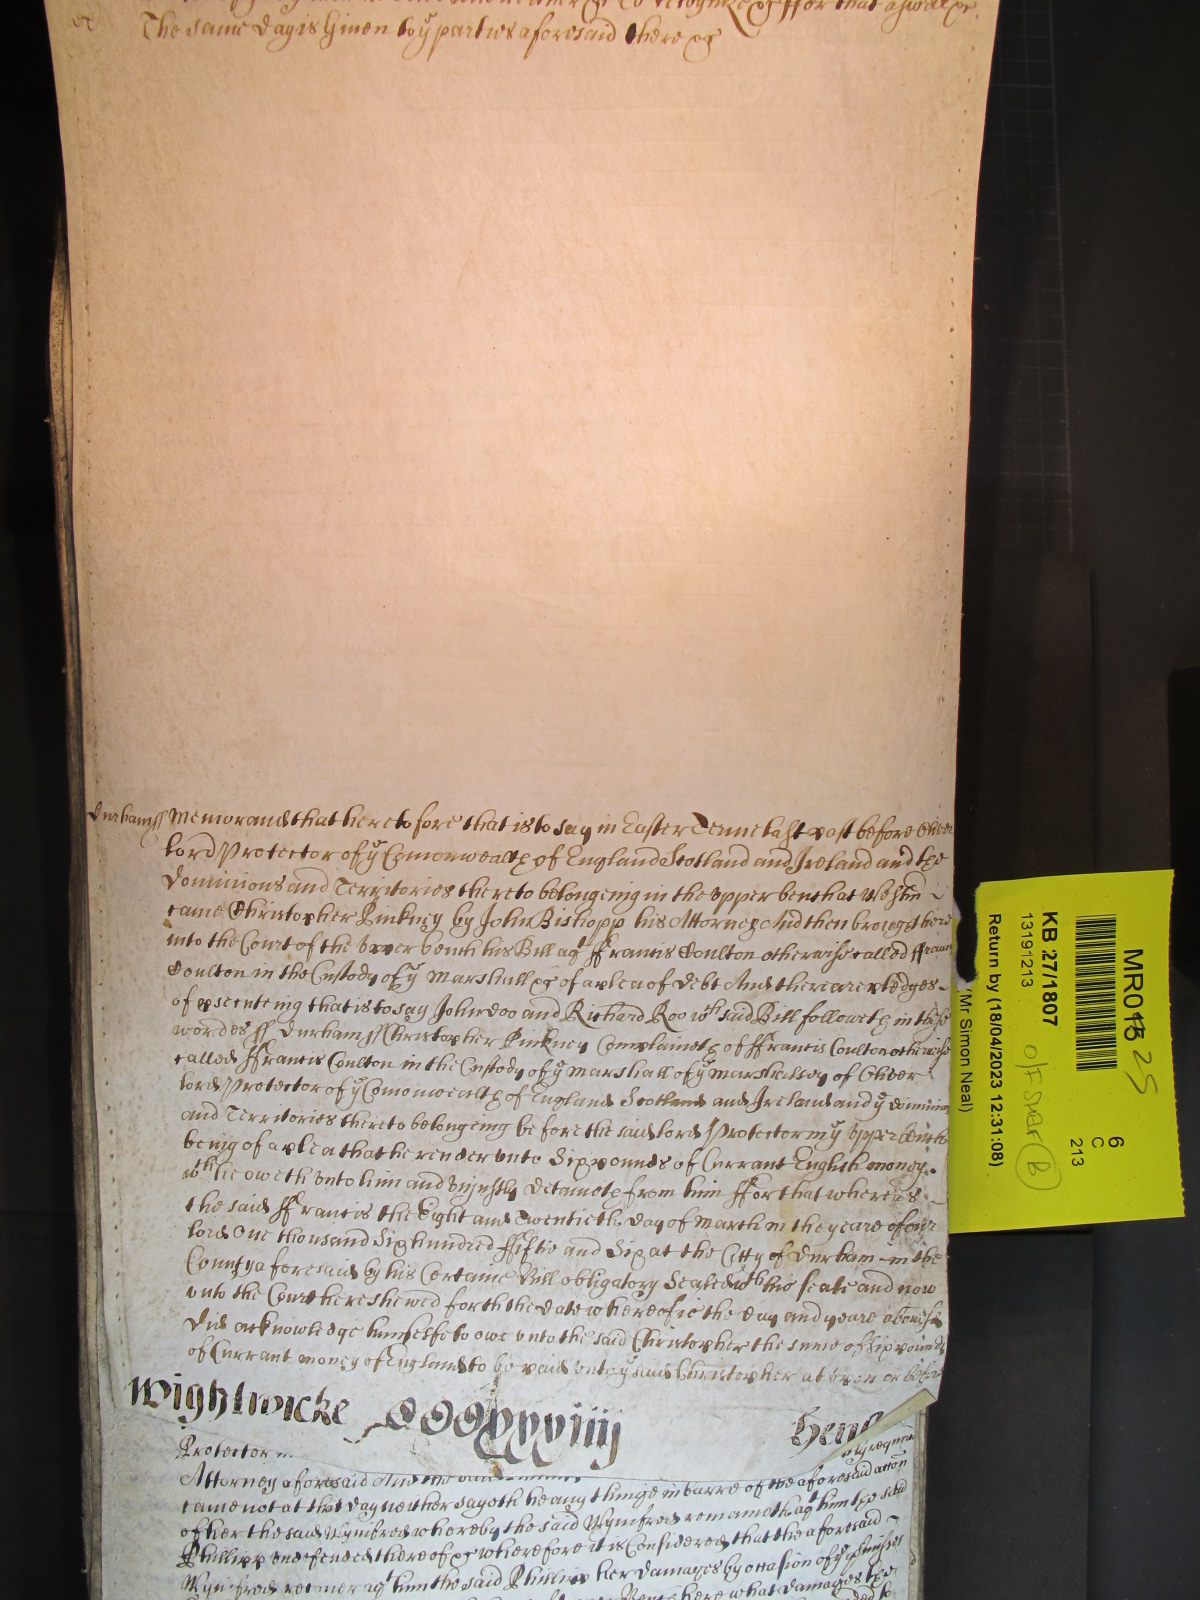 to recognize &c ffor that aswell &c
The same day is Given to yᵉ parties aforesaid there &c
Durham ss Memorand that heretofore that is to say in Easter Terme last past before Oliver
lord Protector of yᵉ Comonwealth of England Scotland and Ireland and the
Dominions and Territories thereto belongeing in the upper bench at Westm
came Christopher Pinkney by John Bishopp his Attorney And then brought here
into the Court of the upper bench his Bill agᵗ ffrancis Coulton otherwise called ffrancis
Coulton in the Custody of yᵉ Marshall &c of a plea of debt And there are pledges
of psenteing that is to say John Doo and Richard Roo wᶜʰ said Bill followeth in these
wordes ss Durham ss Christopher Pinkney Complaineth of ffrancis Coulton otherwise
called ffrancis Coulton in the Custody of yᵉ Marshall of yᵉ Marshalsey of Oliver
lord Protector of yᵉ Comonwealth of England Scotland and Ireland and yᵉ dominions
and Territories thereto belongeing before the said lord Protector in yᵉ upper bench
being of a plea that he render unto Six pounds of Currant English money
wᶜʰ he oweth unto him and unjustly detaineth from him ffor that whereas
the said ffrancis the Eight and Twentieth day of March in the yeare of our
lord One thousand Six hundred ffiftie and Six at the Citty of Durham in the
County aforesaid by his Certaine Bill obligatory Sealed wᵗʰ his seale and now
unto the Court here shewed forth the date whereof is the day and yeare abovesd
did acknowledge himselfe to owe unto the said Christopher the sume of Six pounds
of Currant money of England to be paid unto yᵉ said Christopher at upon or before
Wightwicke CCCCxxxiiij Hen
Protector
Attorney aforesaid And the said
came not at that day neither sayeth he any thinge in barre of the aforesaid accon
of her the said Wynifred whereby the said Wynifred remaineth agᵗ him the said
Phillipp undefended thereof &c wherefore it is Considered that the aforesaid
Wynifred recover agᵗ him the said Phillipp her damages by occasion of yᵉ pmisses
here what damages the
MR018 25
6
C
213
KB 27/1807
13191213
O/F SHELF B
Return by (18/04/2023 12:31:08)
(Mr Simon Neal)